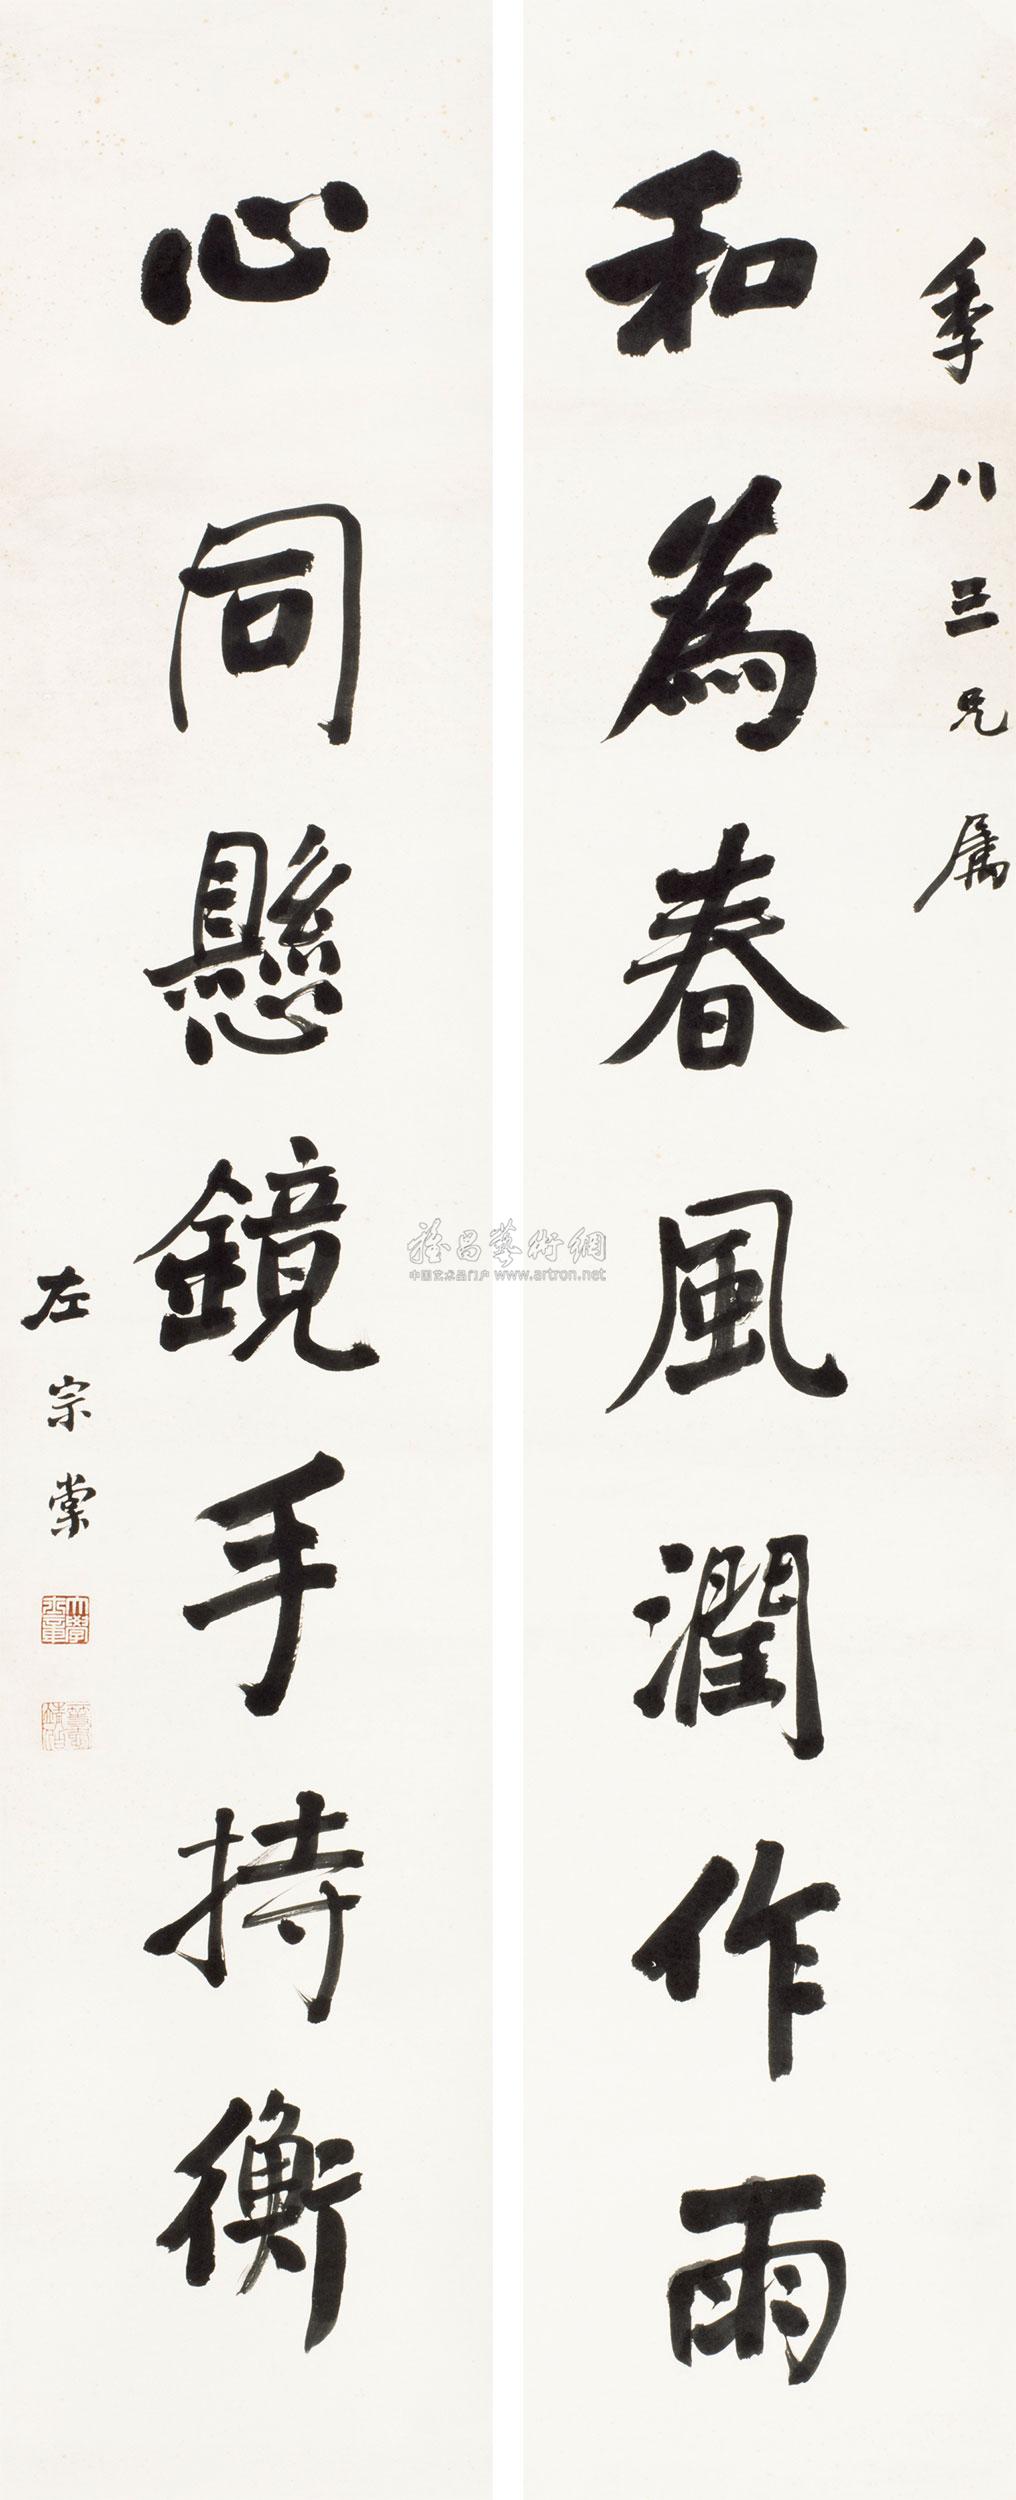 季川三兄属
和為春風潤作雨
心同懸鏡手持衡
左宗棠
雅昌藝術網
中国艺术品门户 www.artron.net